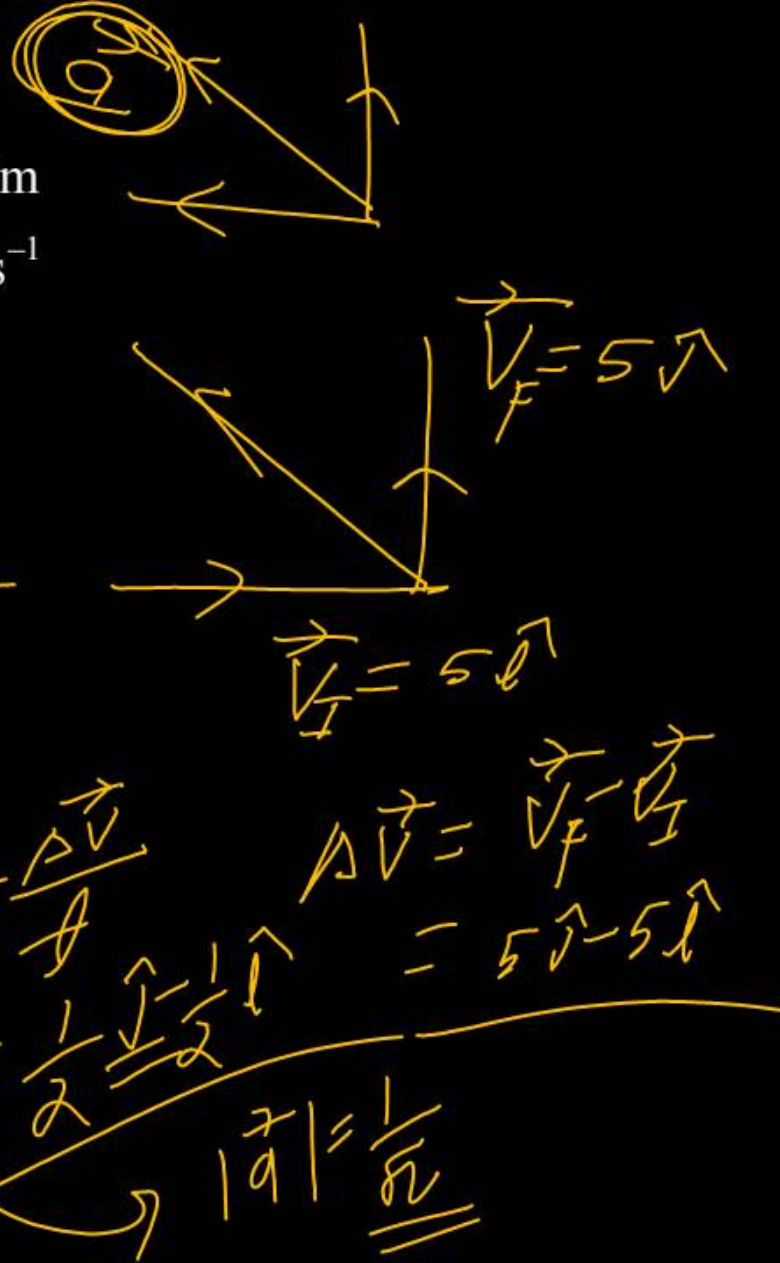 a
m
s⁻¹
V⃗_F = 5 ĵ
V⃗_I = 5 î
ΔV⃗ / t
ΔV⃗ = V⃗_F - V⃗_I
= 5ĵ - 5î
1/2 ĵ - 1/2 î
|a⃗| = 1/√2